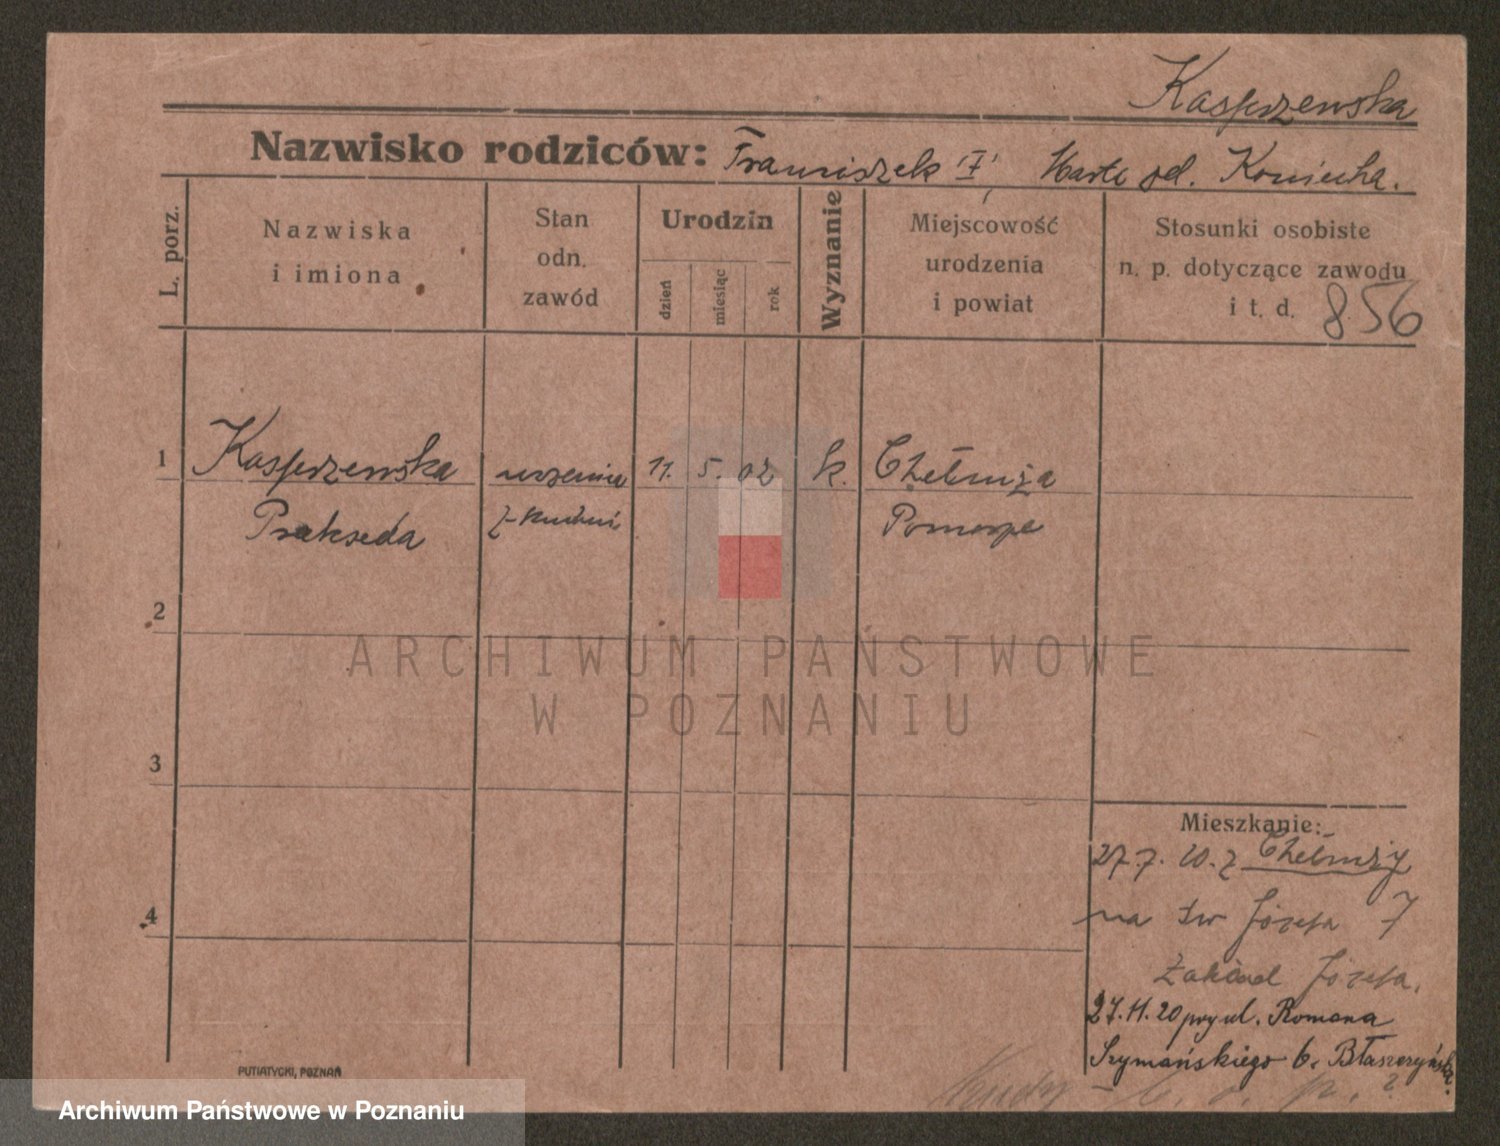 Kasprzewska
Nazwisko rodziców: Franciszek Marta
L. porz.
Nazwiska
i imiona
Stan
odn.
zawód
Urodzin
dzień
miesiąc
rok
Wyznanie
Miejscowość
urodzenia
i powiat
Stosunki osobiste
n. p. dotyczące zawodu
i t. d. 856
1 Kasprzewska uczenica 11. 5. 02 k. Chełmża
Prakseda Pomorze
2
3
4
Mieszkanie:
27.7. 20. z Chełmży
na św Józefa 7
Zakład Józefa.
27.11.20 przy ul. Romana
Szymańskiego 6. Błaszczyńska.
PUTIATYCKI, POZNAŃ
ARCHIWUM PAŃSTWOWE
W POZNANIU
Archiwum Państwowe w Poznaniu